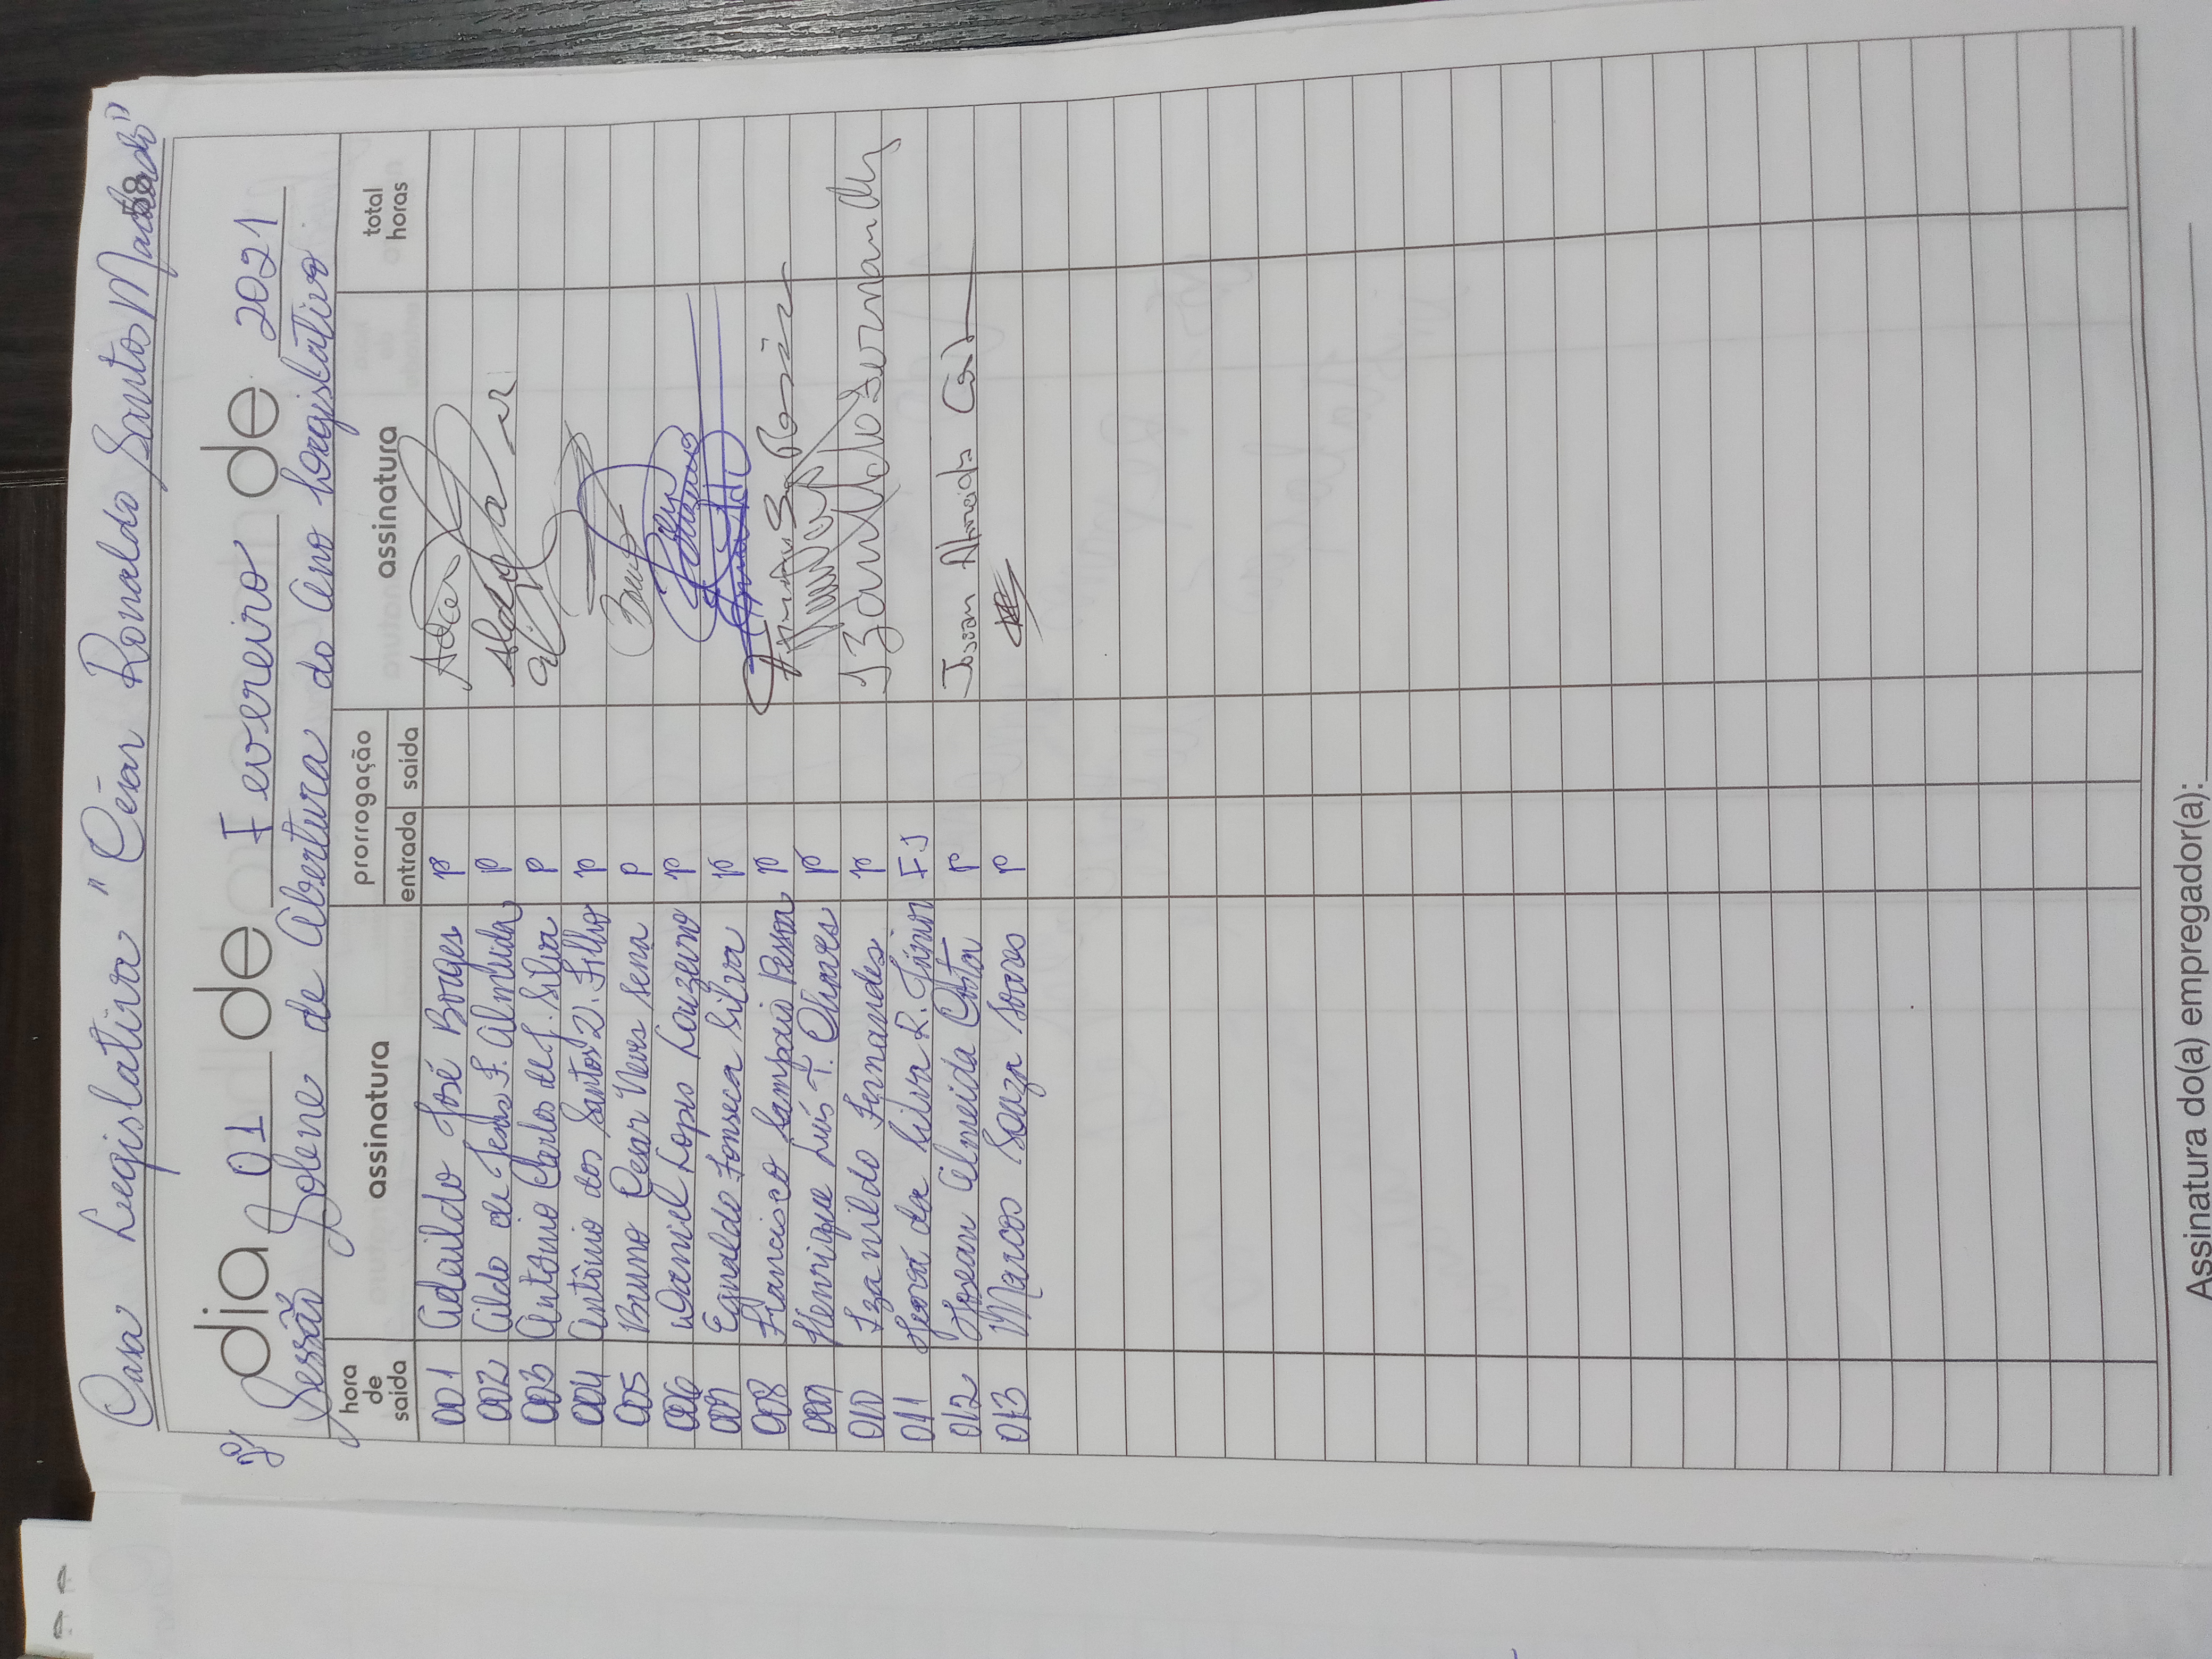 Casa Legislativa "César Ronaldo Santos Machado"
58
20
dia 01 de Fevereiro de 2021
Sessão Solene de Abertura do Ano Legislativo
hora de saida assinatura prorrogação entrada saida assinatura total horas
001 Adaildo José Borges P
002 Aildo de Jesus F. Almeida P Aldo
003 Antônio Carlos de J. Silva P
004 Antônio dos Santos V. Filho P
005 Bruno Cesar Neves Sena P Bruno
006 Daniel Lopes Louzeiro P
007 Egnaldo Fonseca Silva P
008 Francisco Sampaio Pessoa P
009 Henrique Luís T. Oliveira P
010 Izanildo Fernandes P Izanildo Fernandes
011 da Silva R. Júnior FJ
012 Josean Almeida Costa P Josean Almeida Costa
013 Marcos Souza Soares P
Assinatura do(a) empregador(a):